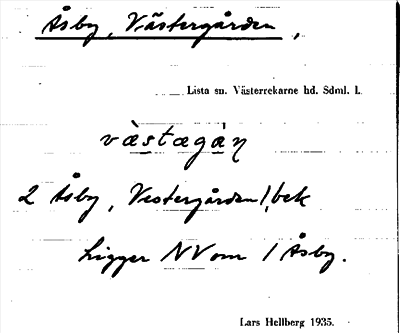 Åsby, Västergården,
Lista sn. Västerrekarne hd. Sdml. l.
vàstægàṇ
2 Åsby, Vestergården l, bek
Ligger NV om 1 Åsby.
Lars Hellberg 1935.